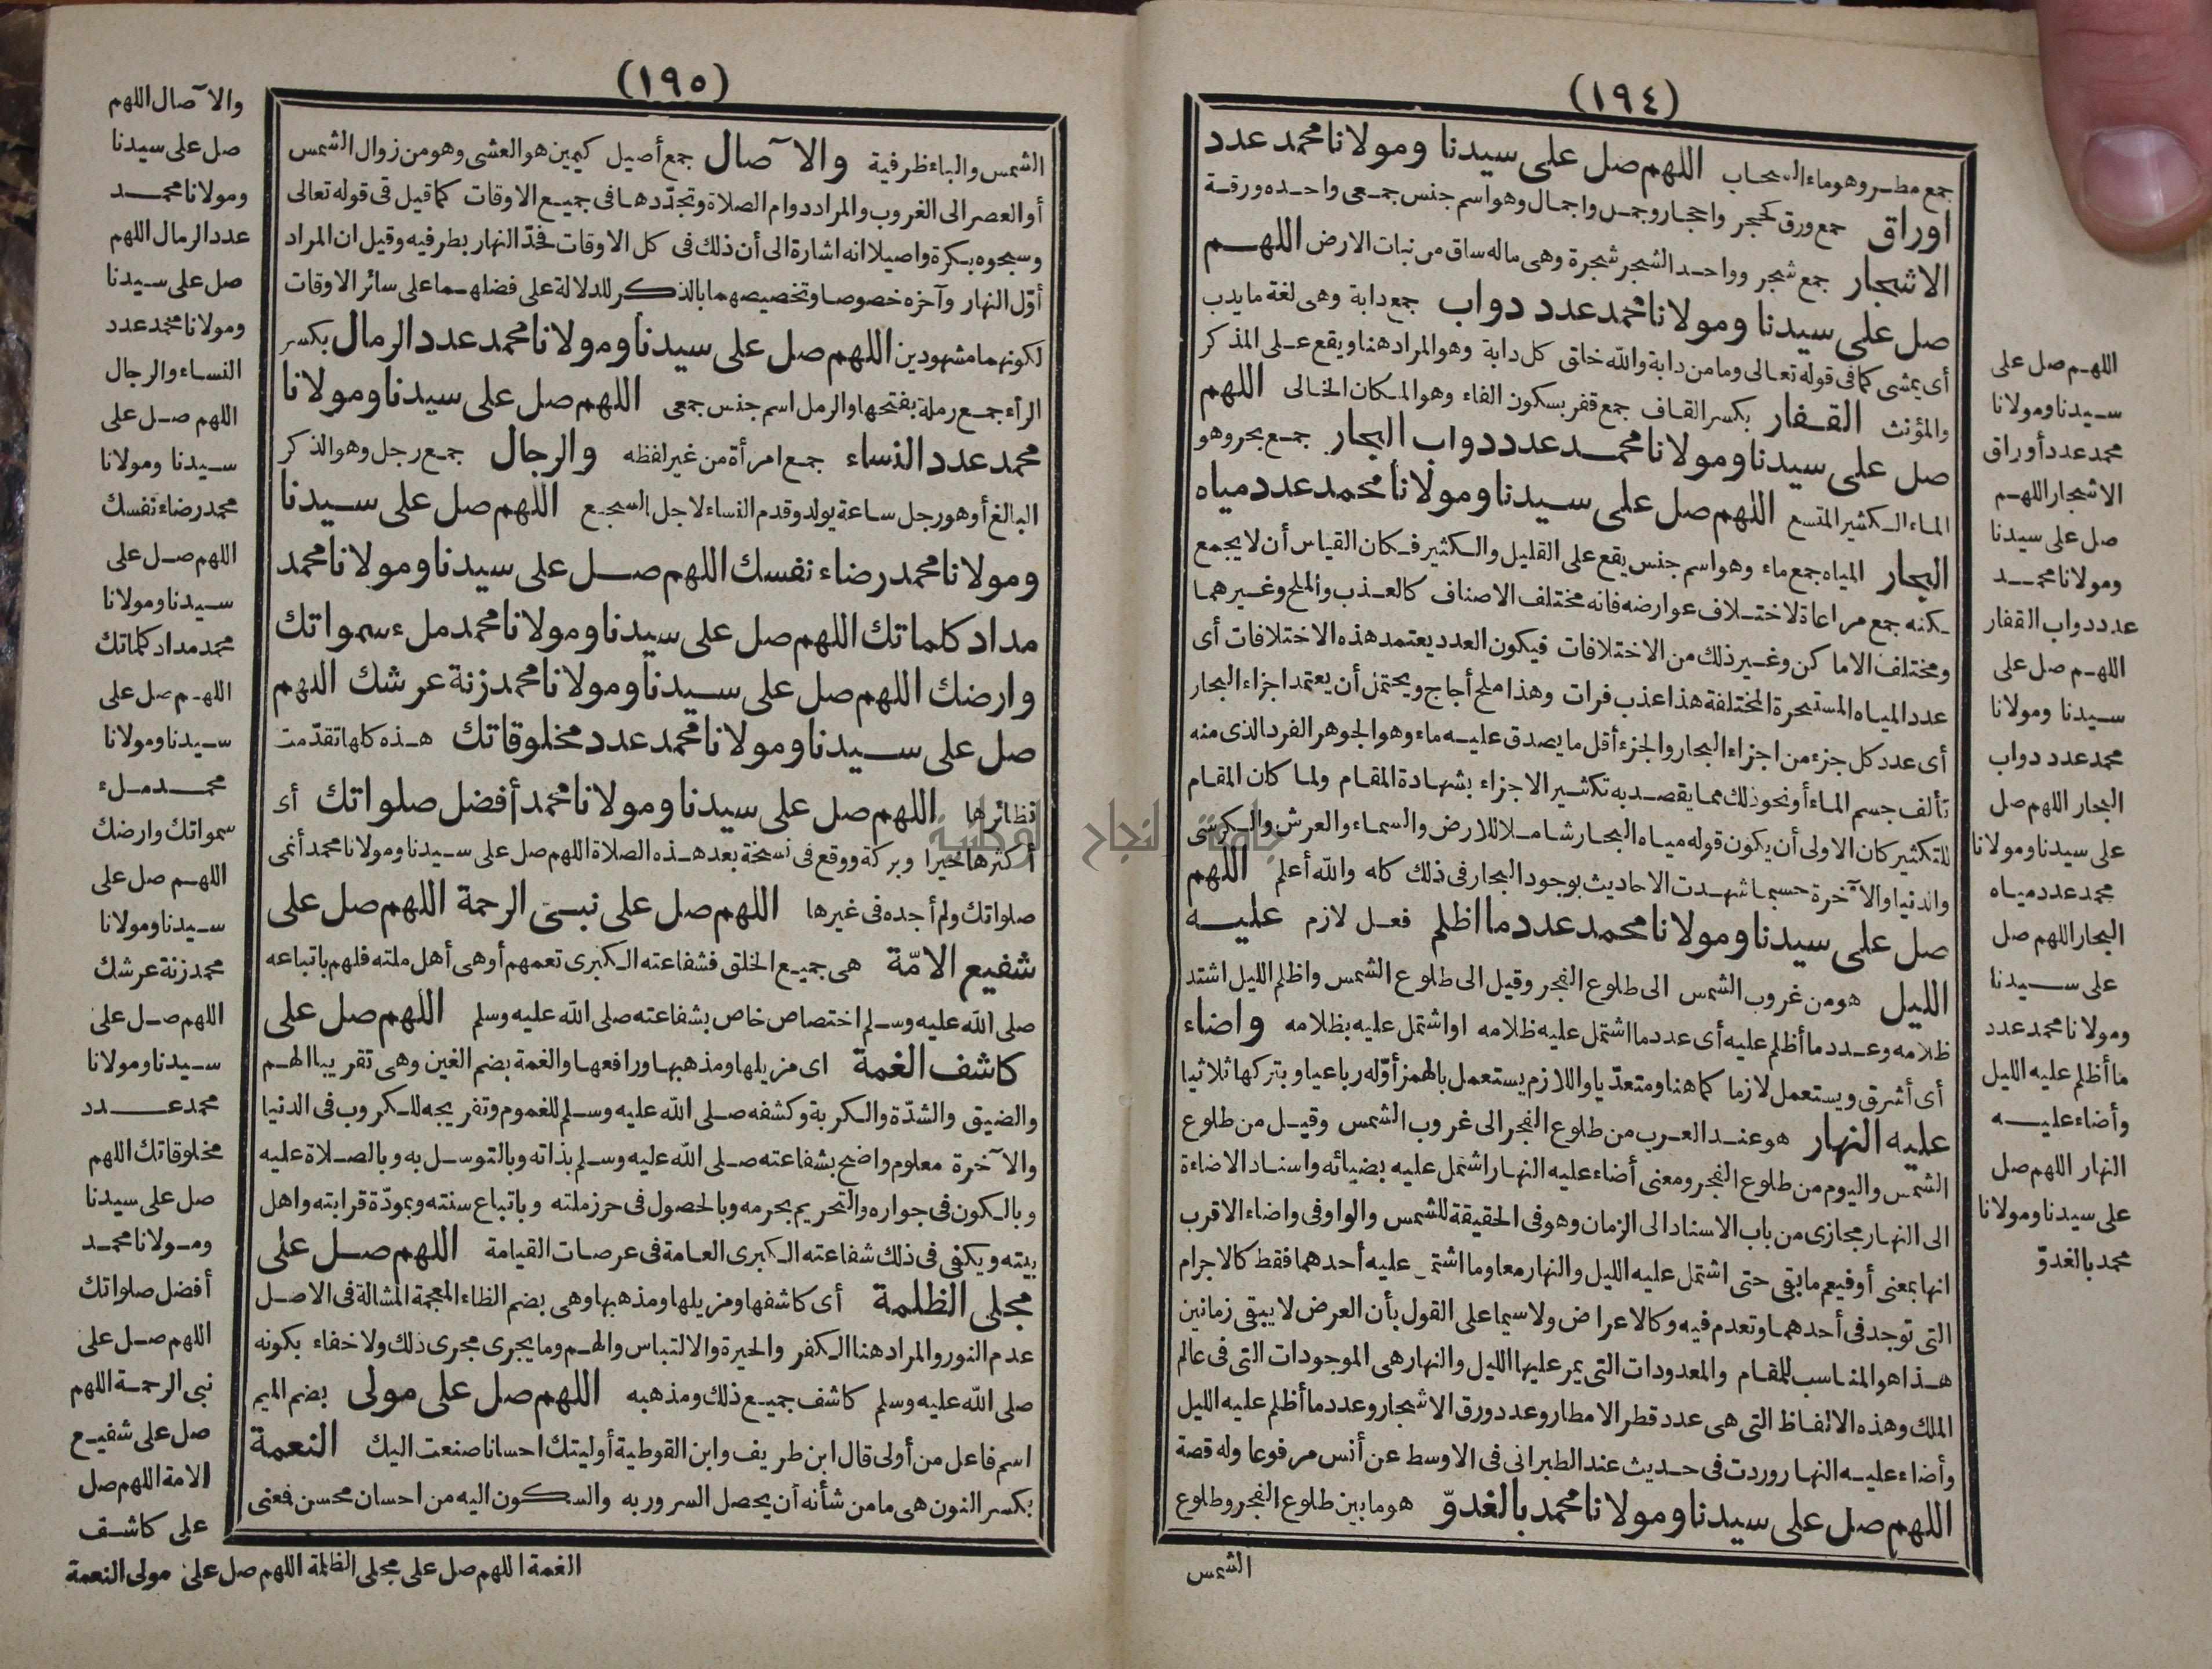 (١٩٤)
جمع مطر وهو ماء السحاب اللهم صل على سيدنا ومولانا محمد عدد
اوراق جمع ورق كحجر واحجار وجمل واجمال وهو اسم جنس جمعى واحده ورقة
الاشجار جمع شجر وواحد الشجر شجرة وهى ماله ساق من نبات الارض اللهم
صل على سيدنا ومولانا محمد عدد دواب جمع دابة وهى لغة ما يدب
أى يمشى كما فى قوله تعالى وما من دابة والله خالق كل دابة وهو المراد هنا ويقع على المذكر
والمؤنث القفار بكسر القاف جمع قفر بسكون الفاء وهو المكان الخالى اللهم
صل على سيدنا ومولانا محمد عدد دواب البحار جمع بحر وهو
الماء الكثير المتسع اللهم صل على سيدنا ومولانا محمد عدد مياه
البحار المياه جمع ماء وهو اسم جنس يقع على القليل والكثير فكان القياس أن لا يجمع
لكنه جمع مراعاة لاختلاف عوارضه فانه مختلف الاصناف كالعذب والملح وغيرهما
ومختلف الاماكن وغير ذلك من الاختلافات فيكون العدد يعتمد هذه الاختلافات أى
عدد المياه المستبحرة المختلفة هذا عذب فرات وهذا ملح أجاج ويحتمل أن يعتمد اجزاء البحار
أى عدد كل جزء من اجزاء البحار والجزء أقل ما يصدق عليه ماء وهو الجوهر الفرد الذى منه
تألف جسم الماء أو نحو ذلك مما يقصد به تكثير الاجزاء بشهادة المقام ولما كان المقام
للتكثير كان الاولى أن يكون قوله مياه البحار شاملا للارض والسماء والعرش والكرسى
والدنيا والآخرة حسبما شهدت الاحاديث بوجود البحار فى ذلك كله والله أعلم اللهم
صل على سيدنا ومولانا محمد عدد ما اظلم فعل لازم عليه
الليل هو من غروب الشمس الى طلوع الفجر وقيل الى طلوع الشمس واظلم الليل اشتد
ظلامه وعدد ما أظلم عليه أى عدد ما اشتمل عليه ظلامه او اشتمل عليه بظلامه واضاء
أى أشرق ويستعمل لازما كما هنا ومتعدّيا واللازم يستعمل بالهمز أوّله رباعيا وبتركها ثلاثيا
عليه النهار هو عند العرب من طلوع الفجر الى غروب الشمس وقيل من طلوع
الشمس واليوم من طلوع الفجر ومعنى أضاء عليه النهار اشتمل عليه بضيائه واسناد الاضاءة
الى النهار مجازى من باب الاسناد الى الزمان وهو فى الحقيقة للشمس والواو فى واضاء الاقرب
انها بمعنى أو فيعم ما بقى حتى اشتمل عليه الليل والنهار معا وما اشتمل عليه أحدهما فقط كالاجرام
التى توجد فى أحدهما وتعدم فيه وكالاعراض ولا سيما على القول بأن العرض لا يبقى زمانين
هذا هو المناسب للمقام والمعدودات التى يمر عليها الليل والنهار هى الموجودات التى فى عالم
الملك وهذه الالفاظ التى هى عدد قطر الامطار وعدد ورق الاشجار وعدد ما أظلم عليه الليل
وأضاء عليه النهار وردت فى حديث عند الطبرانى فى الاوسط عن أنس مرفوعا وله قصة
اللهم صل على سيدنا ومولانا محمد بالغدوّ هو ما بين طلوع الفجر وطلوع
الشمس
اللهم صل على
سيدنا ومولانا
محمد عدد أوراق
الاشجار اللهم
صل على سيدنا
ومولانا محمد
عدد دواب القفار
اللهم صل على
سيدنا ومولانا
محمد عدد دواب
البحار اللهم صل
على سيدنا ومولانا
محمد عدد مياه
البحار اللهم صل
على سيدنا
ومولانا محمد عدد
ما أظلم عليه الليل
وأضاء عليه
النهار اللهم صل
على سيدنا ومولانا
محمد بالغدوّ
(١٩٥)
الشمس والباء ظرفية والآصال جمع أصيل كيمين هو العشى وهو من زوال الشمس
أو العصر الى الغروب والمراد دوام الصلاة وتجدّدها فى جميع الاوقات كما قيل فى قوله تعالى
وسبحوه بكرة واصيلا انه اشارة الى أن ذلك فى كل الاوقات فحدّ النهار بطرفيه وقيل ان المراد
أوّل النهار وآخره خصوصا وتخصيصهما بالذكر للدلالة على فضلهما على سائر الاوقات
لكونهما مشهودين اللهم صل على سيدنا ومولانا محمد عدد الرمال بكسر
الراء جمع رملة بفتحها والرمل اسم جنس جمعى اللهم صل على سيدنا ومولانا
محمد عدد النساء جمع امرأة من غير لفظه والرجال جمع رجل وهو الذكر
البالغ أو هو رجل ساعة يولد وقدم النساء لاجل السجع اللهم صل على سيدنا
ومولانا محمد رضاء نفسك اللهم صل على سيدنا ومولانا محمد
مداد كلماتك اللهم صل على سيدنا ومولانا محمد ملء سمواتك
وارضك اللهم صل على سيدنا ومولانا محمد زنة عرشك اللهم
صل على سيدنا ومولانا محمد عدد مخلوقاتك هذه كلها تقدّمت
نظائرها اللهم صل على سيدنا ومولانا محمد أفضل صلواتك أى
أكثرها خيرا وبركة ووقع فى نسخة بعد هذه الصلاة اللهم صل على سيدنا ومولانا محمد أنمى
صلواتك ولم أجده فى غيرها اللهم صل على نبى الرحمة اللهم صل على
شفيع الامّة هى جميع الخلق فشفاعته الكبرى تعمهم أو هى أهل ملته فلهم باتباعه
صلى الله عليه وسلم اختصاص خاص بشفاعته صلى الله عليه وسلم اللهم صل على
كاشف الغمة اى مزيلها ومذهبها ورافعها والغمة بضم الغين وهى تقريبا الهم
والضيق والشدّة والكربة وكشفه صلى الله عليه وسلم للغموم وتفريجه للكروب فى الدنيا
والآخرة معلوم واضح بشفاعته صلى الله عليه وسلم بذاته وبالتوسل به وبالصلاة عليه
وبالكون فى جواره والتحريم بحرمه وبالحصول فى حرز ملته وباتباع سنته وبمودّة قرابته واهل
بيته ويكفى فى ذلك شفاعته الكبرى العامة فى عرصات القيامة اللهم صل على
مجلى الظلمة أى كاشفها ومزيلها ومذهبها وهى بضم الظاء المعجمة المشالة فى الاصل
عدم النور والمراد هنا الكفر والحيرة والالتباس والهم وما يجرى مجرى ذلك ولا خفاء بكونه
صلى الله عليه وسلم كاشف جميع ذلك ومذهبه اللهم صل على مولى بضم الميم
اسم فاعل من أولى قال ابن طريف وابن القوطية أوليتك احسانا صنعت اليك النعمة
بكسر النون هى ما من شأنه أن يحصل السرور به والسكون اليه من احسان محسن فمعنى
والآصال اللهم
صل على سيدنا
ومولانا محمد
عدد الرمال اللهم
صل على سيدنا
ومولانا محمد عدد
النساء والرجال
اللهم صل على
سيدنا ومولانا
محمد رضاء نفسك
اللهم صل على
سيدنا ومولانا
محمد مداد كلماتك
اللهم صل على
سيدنا ومولانا
محمد ملء
سمواتك وارضك
اللهم صل على
سيدنا ومولانا
محمد زنة عرشك
اللهم صل على
سيدنا ومولانا
محمد عدد
مخلوقاتك اللهم
صل على سيدنا
ومولانا محمد
أفضل صلواتك
اللهم صل على
نبى الرحمة اللهم
صل على شفيع
الامة اللهم صل
على كاشف
الغمة اللهم صل على مجلى الظلمة اللهم صل على مولى النعمة
جامعة النجاح الوطنية